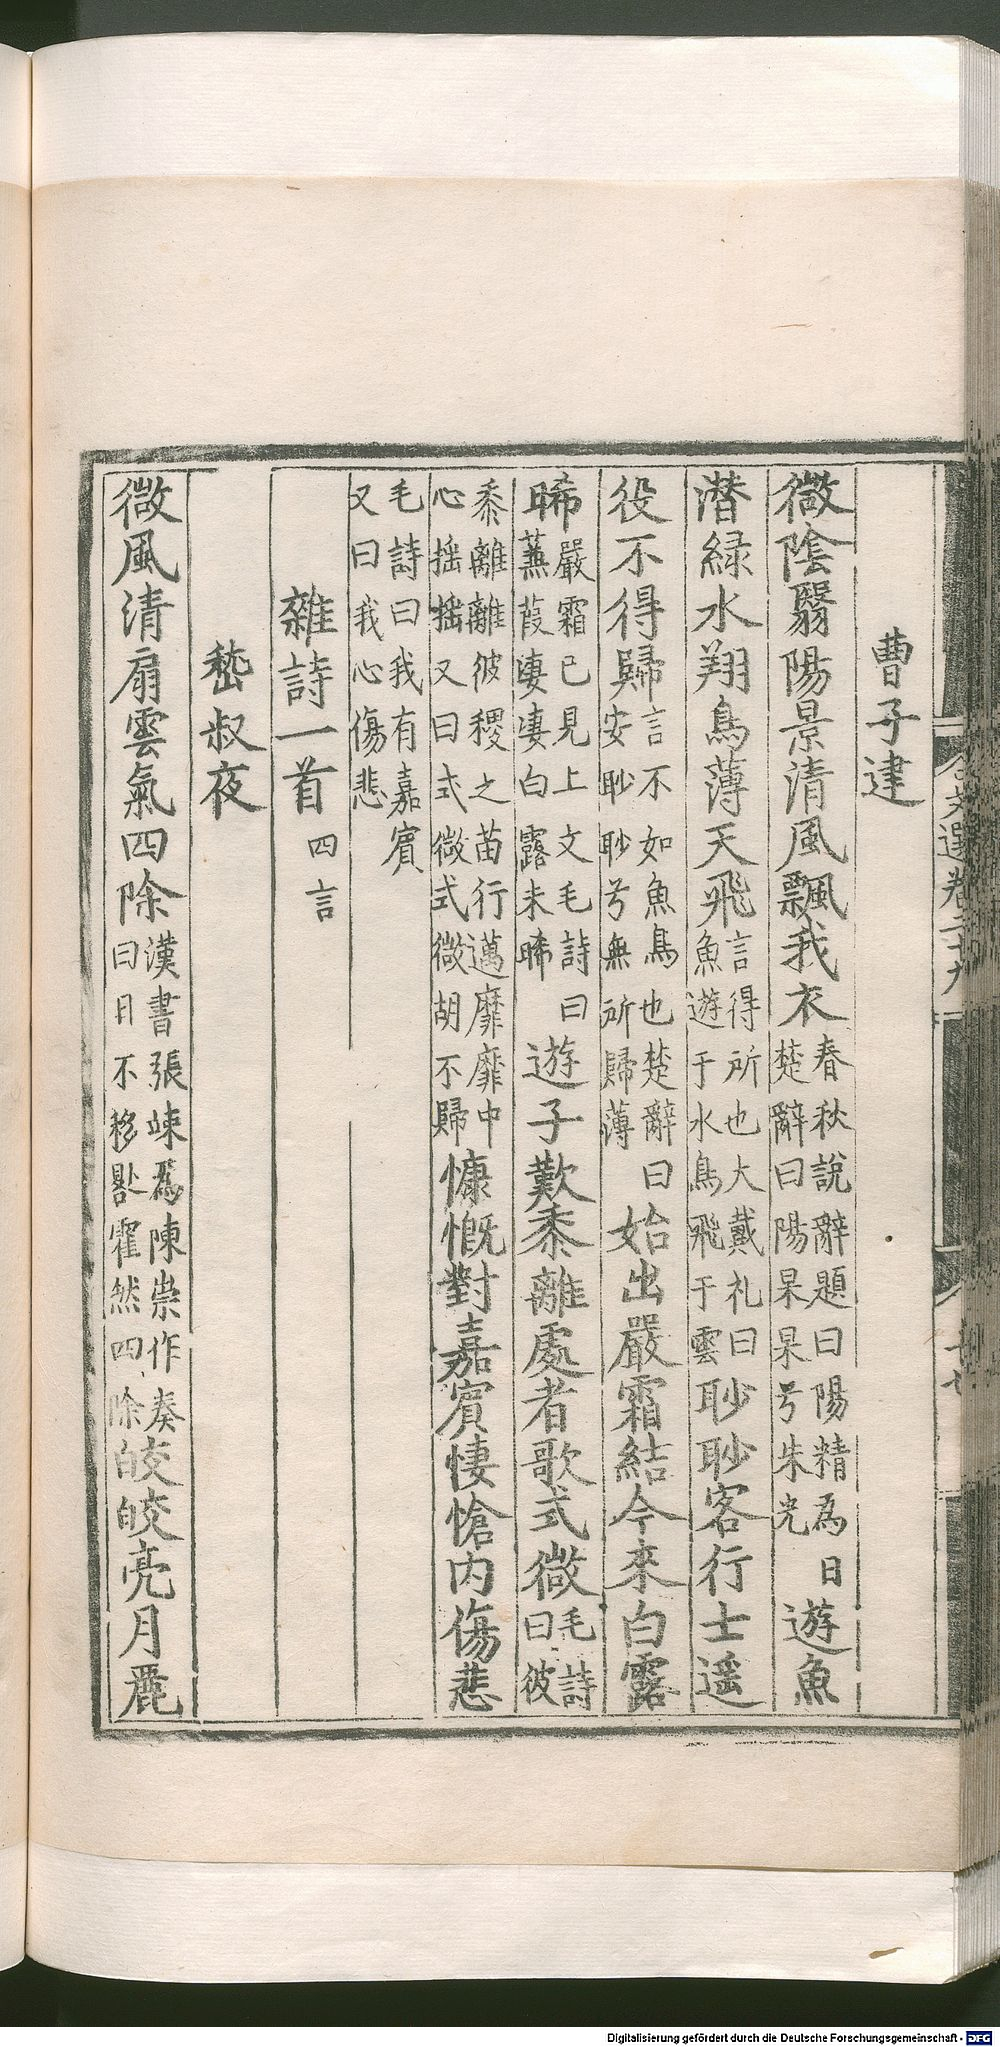 曹子建
微陰翳陽景清風飄我衣春秋說辭題曰陽精為日楚辭曰陽杲杲兮朱光遊魚
潛綠水翔鳥薄天飛言得所也大戴礼曰魚遊于水鳥飛于雲眇眇客行士遥
役不得歸言不如魚鳥也楚辭曰安眇眇兮無所歸薄始出嚴霜結今來白露
晞嚴霜已見上文毛詩曰蒹葭凄凄白露未晞遊子歎黍離處者歌式微毛詩曰彼
黍離離彼稷之苗行邁靡靡中心摇摇又曰式微式微胡不歸慷慨對嘉賓悽愴内傷悲
毛詩曰我有嘉賓又曰我心傷悲
雜詩一首四言
嵇叔夜
微風清扇雲氣四除漢書張竦為陳崇作奏曰日不移晷霍然四除皎皎亮月麗
Digitalisierung gefördert durch die Deutsche Forschungsgemeinschaft - DFG